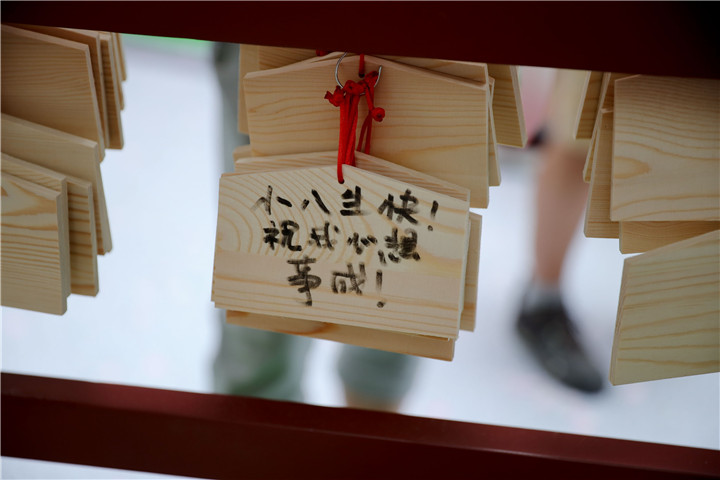 小八生快!
祝我心想
事成!